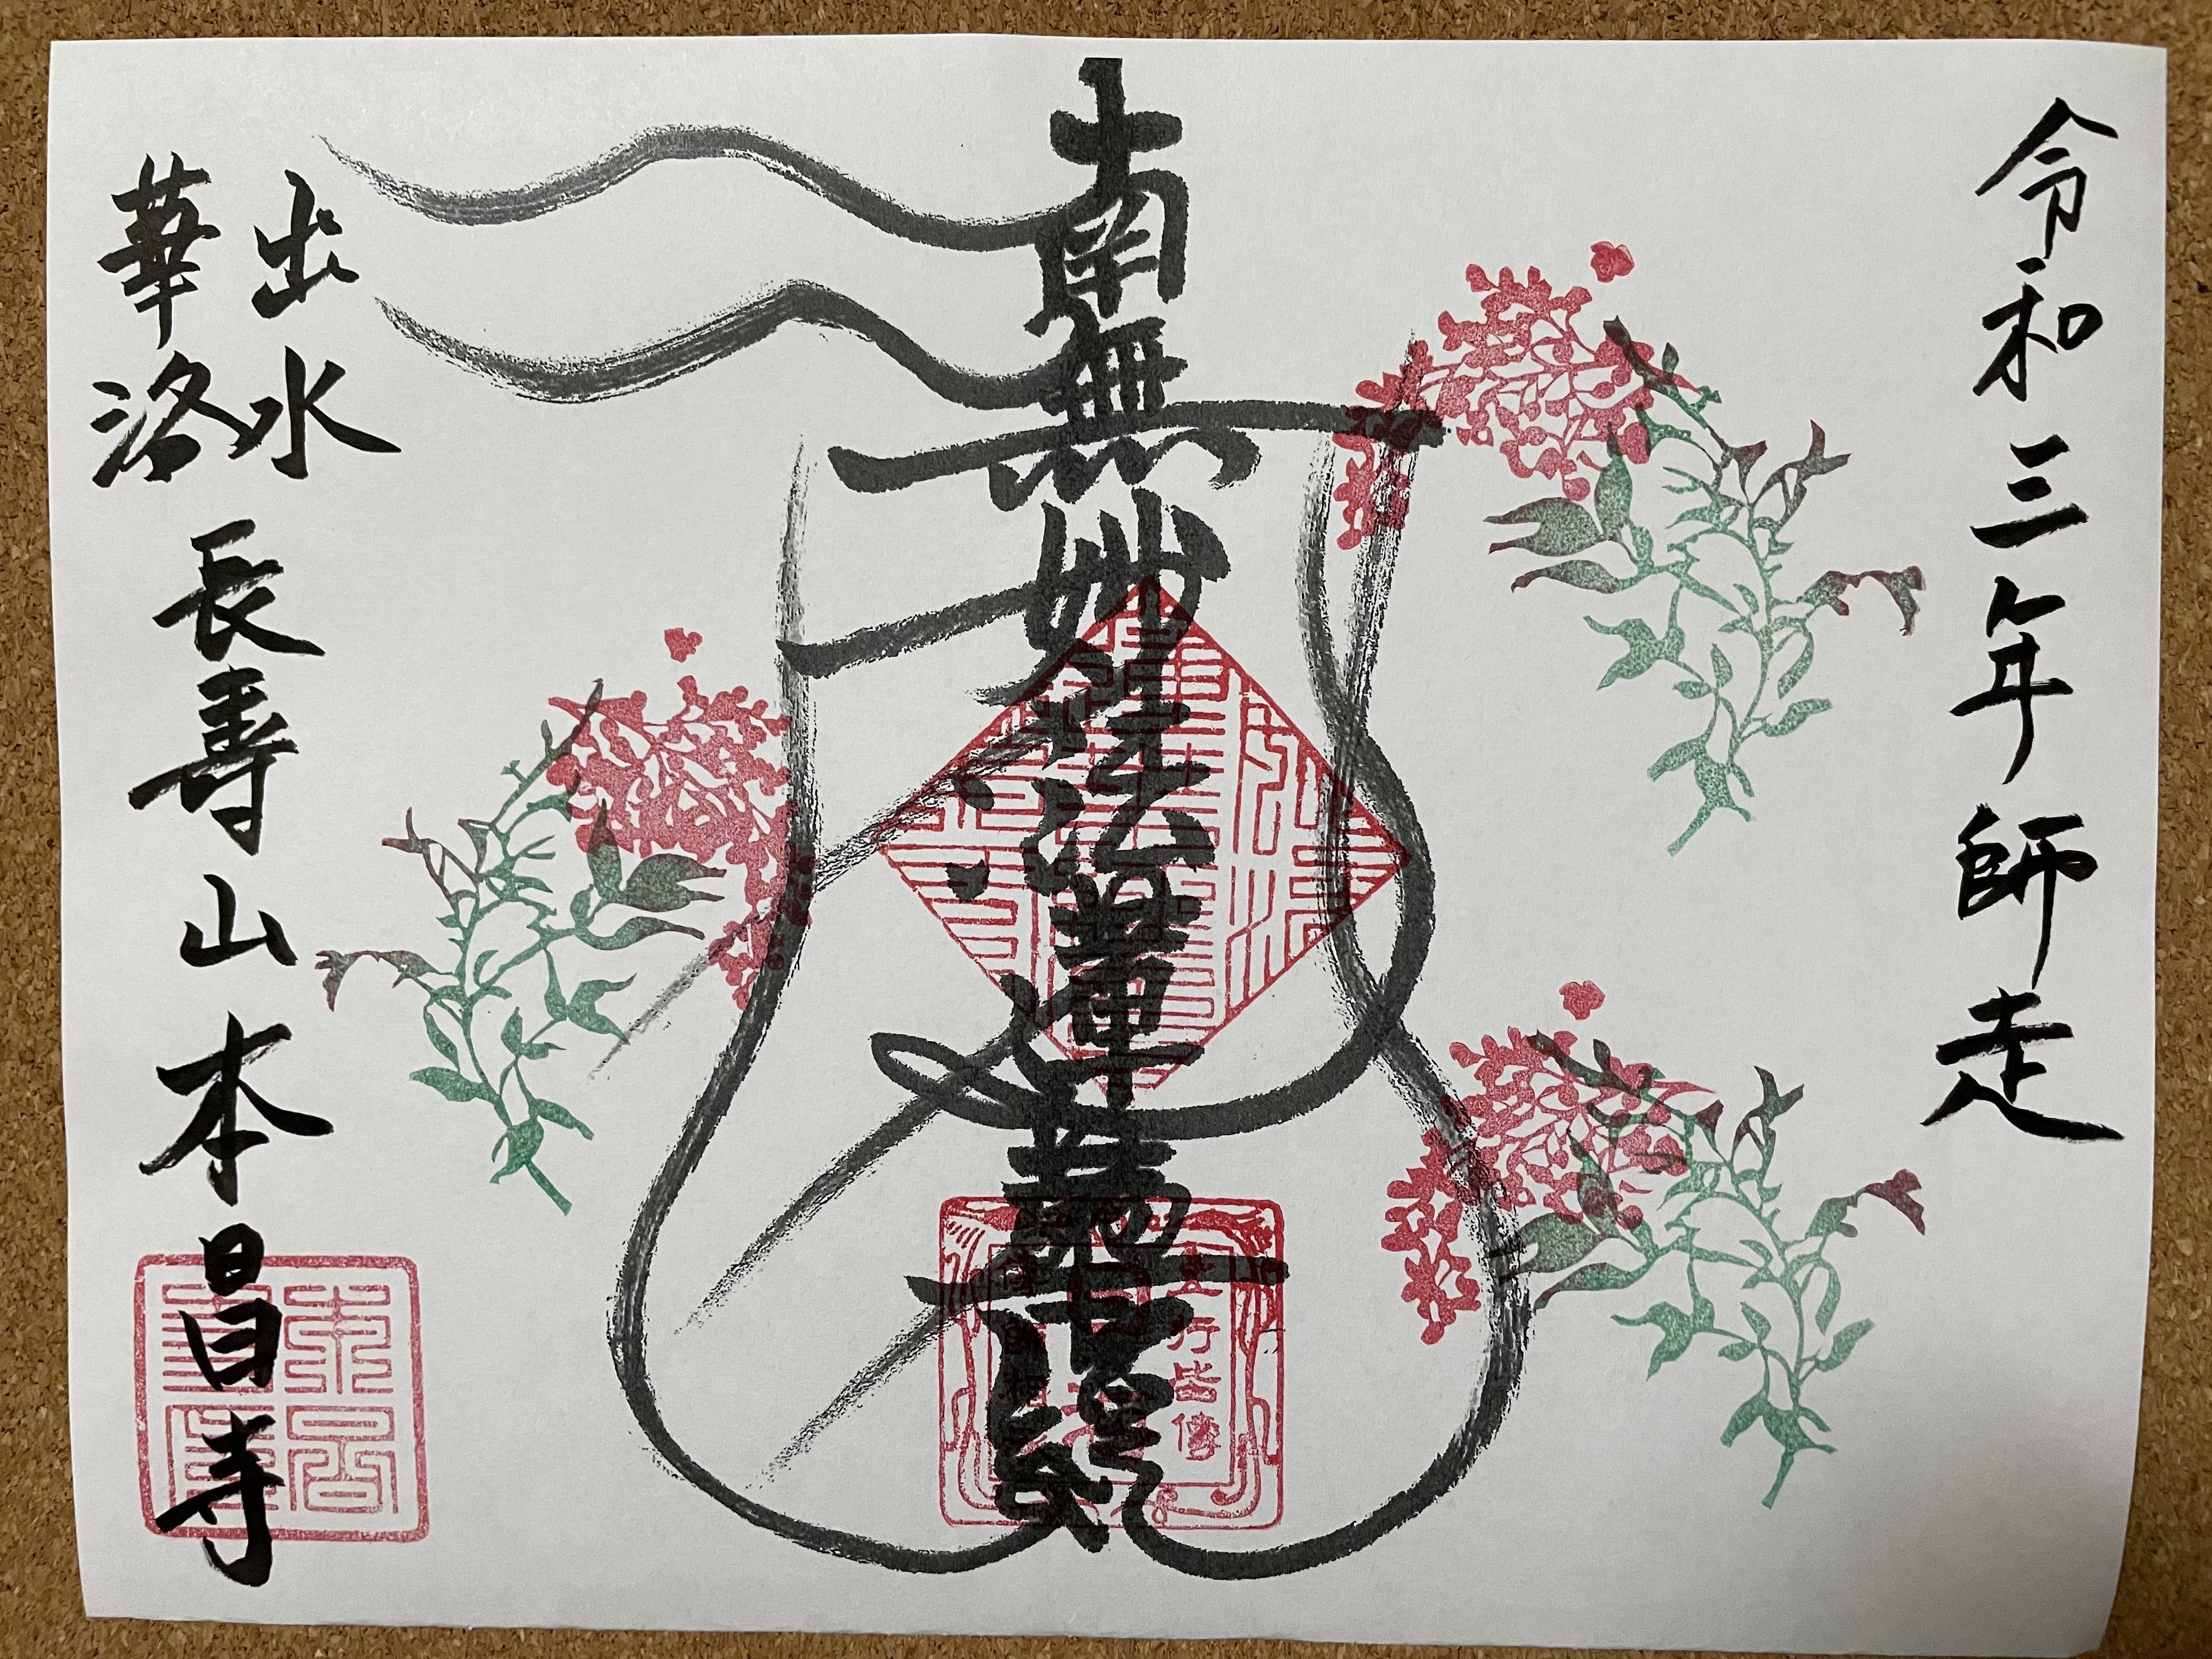 令和三年師走
南無妙法蓮華経
出水
華洛
長寿山本昌寺